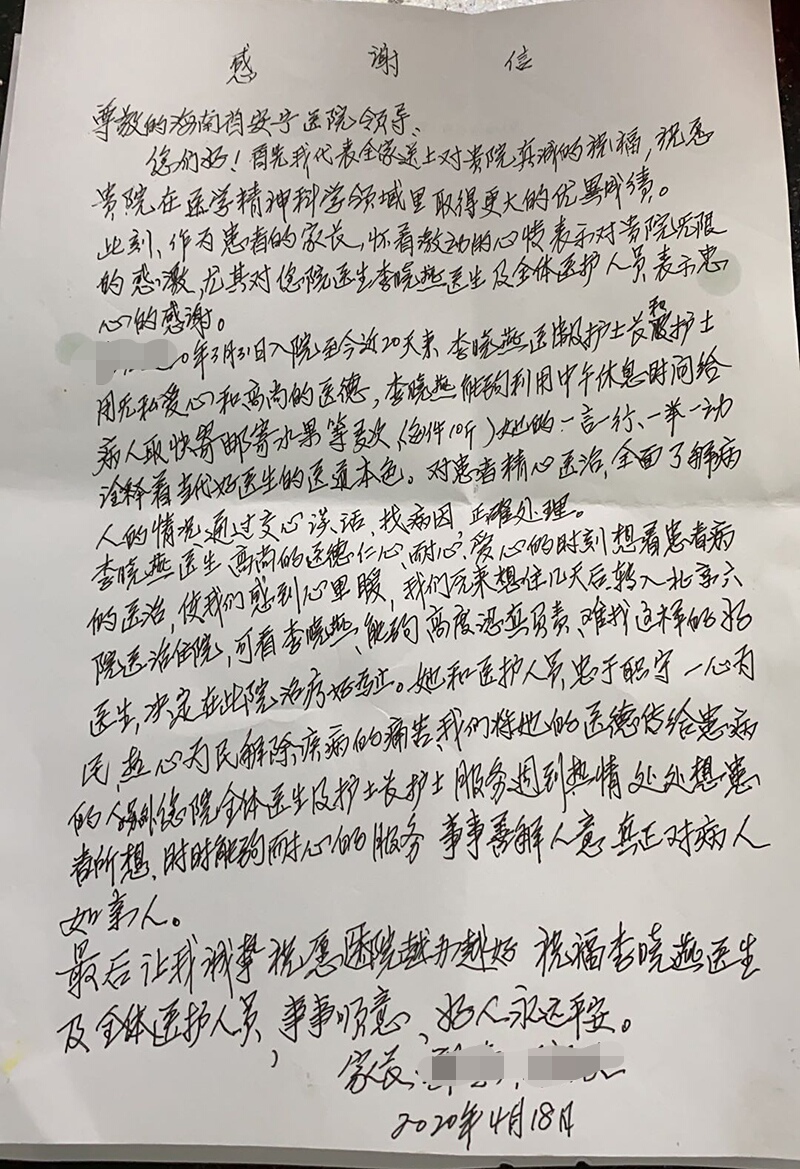 感 谢 信
尊敬的海南省安宁医院领导、
您们好！首先我代表全家送上对贵院真诚的祝福，祝愿
贵院在医学精神科学领域里取得更大的优异成绩。
此刻、作为患者的家长，怀着激动的心情表示对贵院无限
的感激，尤其对您院医生李晓燕医生及全体医护人员表示忠
心的感谢。
0年3月31日入院至今近20天来、李晓燕医生及护士长和护士
用无私爱心和高尚的医德，李晓燕能够利用中午休息时间给
病人取快寄邮寄水果等多次（每件10斤）她的一言一行、一举一动
诠释着当代好医生的医道本色。对患者精心医治，全面了解病
人的情况，通过交心谈话，找病因，正确处理。
李晓燕医生高尚的医德仁心、耐心、爱心的时刻想着患者病
的医治，使我们感到心里暖，我们原来想住几天后转入北京六
院医治住院，可看李晓燕、能够高度认真负责、难找这样的好
医生，决定在此院治疗好为止。她和医护人员忠于职守一心为
民，热心为民解除疾病的痛苦，我们将她的医德传给患病
的人，另外您院全体医生及护士长护士服务周到热情处处想患
者所想，时时能够耐心的服务 事事善解人意真正对病人
如亲人。
最后让我诚挚祝愿医院越办越好 祝福李晓燕医生
及全体医护人员，事事顺意，好人永远平安。
家长：
2020年4月18日